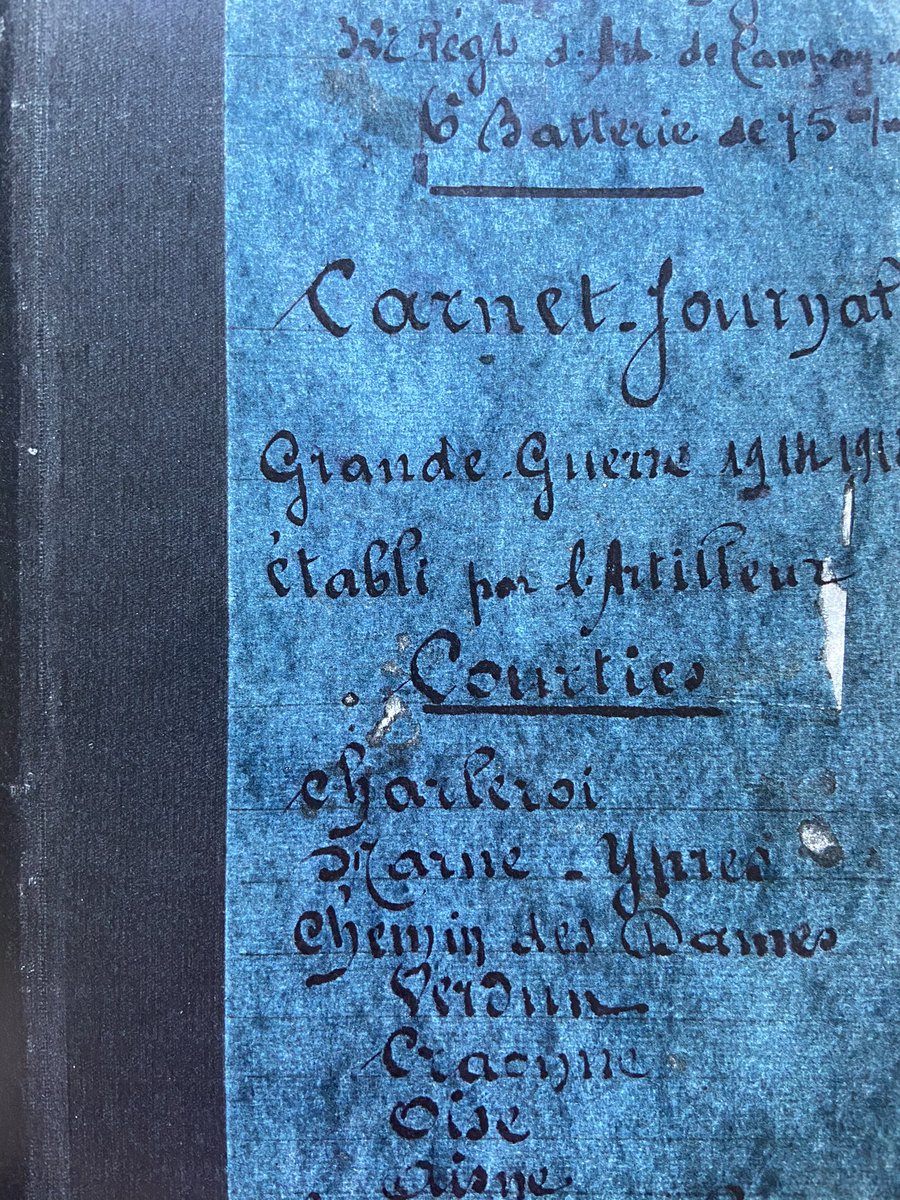 Régt d'Art. de Campagn
6e Batterie de 75 m/m
Carnet-Journal
Grande-Guerre 1914-191
établi par l'Artilleur
Courties
Charleroi
Marne - Ypres
Chemin des Dames
Verdun
Craonne
Oise
Aisne